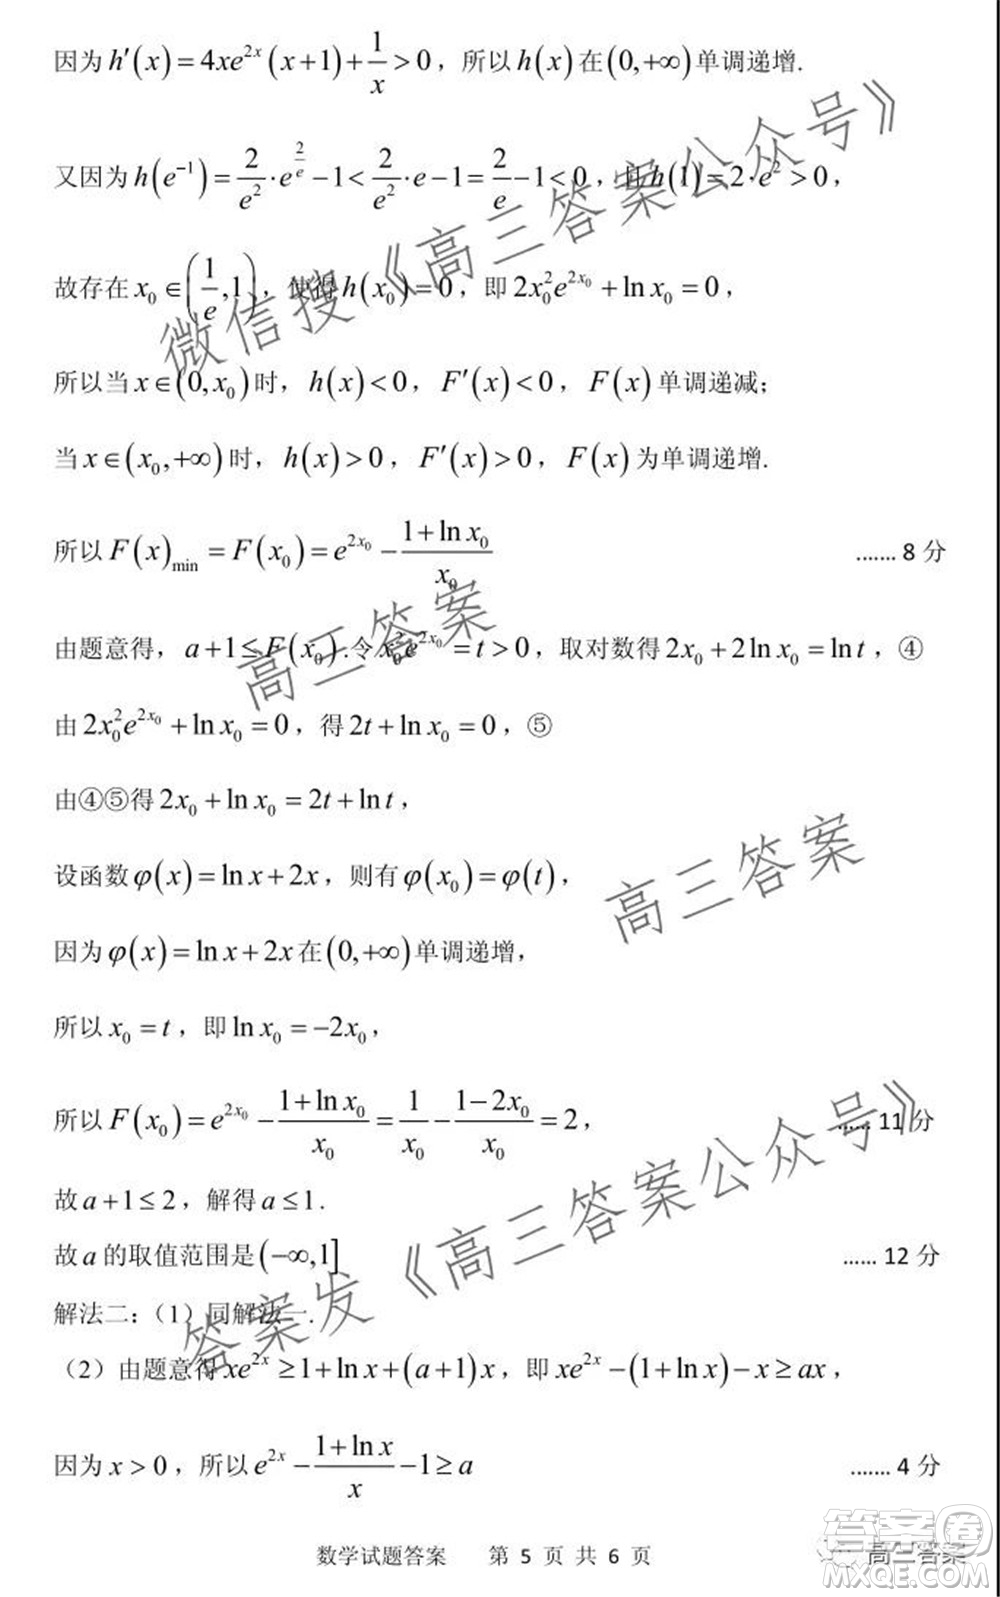 因为h′(x)=4xe^{2x}(x+1)+\frac{1}{x}>0，所以h(x)在(0,+∞)单调递增.
又因为h(e^{-1})=\frac{2}{e^2}·e^{\frac{2}{e}}-1<\frac{2}{e^2}·e-1=\frac{2}{e}-1<0，且h(1)=2·e^2>0，
故存在x_0∈(\frac{1}{e},1)，使得h(x_0)=0，即2x_0^2e^{2x_0}+ln x_0=0，
所以当x∈(0,x_0)时，h(x)<0，F′(x)<0，F(x)单调递减；
当x∈(x_0,+∞)时，h(x)>0，F′(x)>0，F(x)为单调递增.
所以F(x)_{min}=F(x_0)=e^{2x_0}-\frac{1+ln x_0}{x_0} ....... 8 分
由题意得，a+1≤F(x_0).令x_0^2e^{2x_0}=t>0，取对数得2x_0+2ln x_0=ln t，④
由2x_0^2e^{2x_0}+ln x_0=0，得2t+ln x_0=0，⑤
由④⑤得2x_0+ln x_0=2t+ln t，
设函数φ(x)=ln x+2x，则有φ(x_0)=φ(t)，
因为φ(x)=ln x+2x在(0,+∞)单调递增，
所以x_0=t，即ln x_0=-2x_0，
所以F(x_0)=e^{2x_0}-\frac{1+ln x_0}{x_0}=\frac{1}{x_0}-\frac{1-2x_0}{x_0}=2， ...... 11 分
故a+1≤2，解得a≤1.
故a的取值范围是(-∞,1] ...... 12 分
解法二：（1）同解法一.
（2）由题意得xe^{2x}≥1+ln x+(a+1)x，即xe^{2x}-(1+ln x)-x≥ax，
因为x>0，所以e^{2x}-\frac{1+ln x}{x}-1≥a ....... 4 分
数学试题答案 第 5 页 共 6 页
微信搜《高三答案公众号》
高三答案
高三答案
答案发《高三答案公众号》
高三答案
答案圈
MXQE.COM